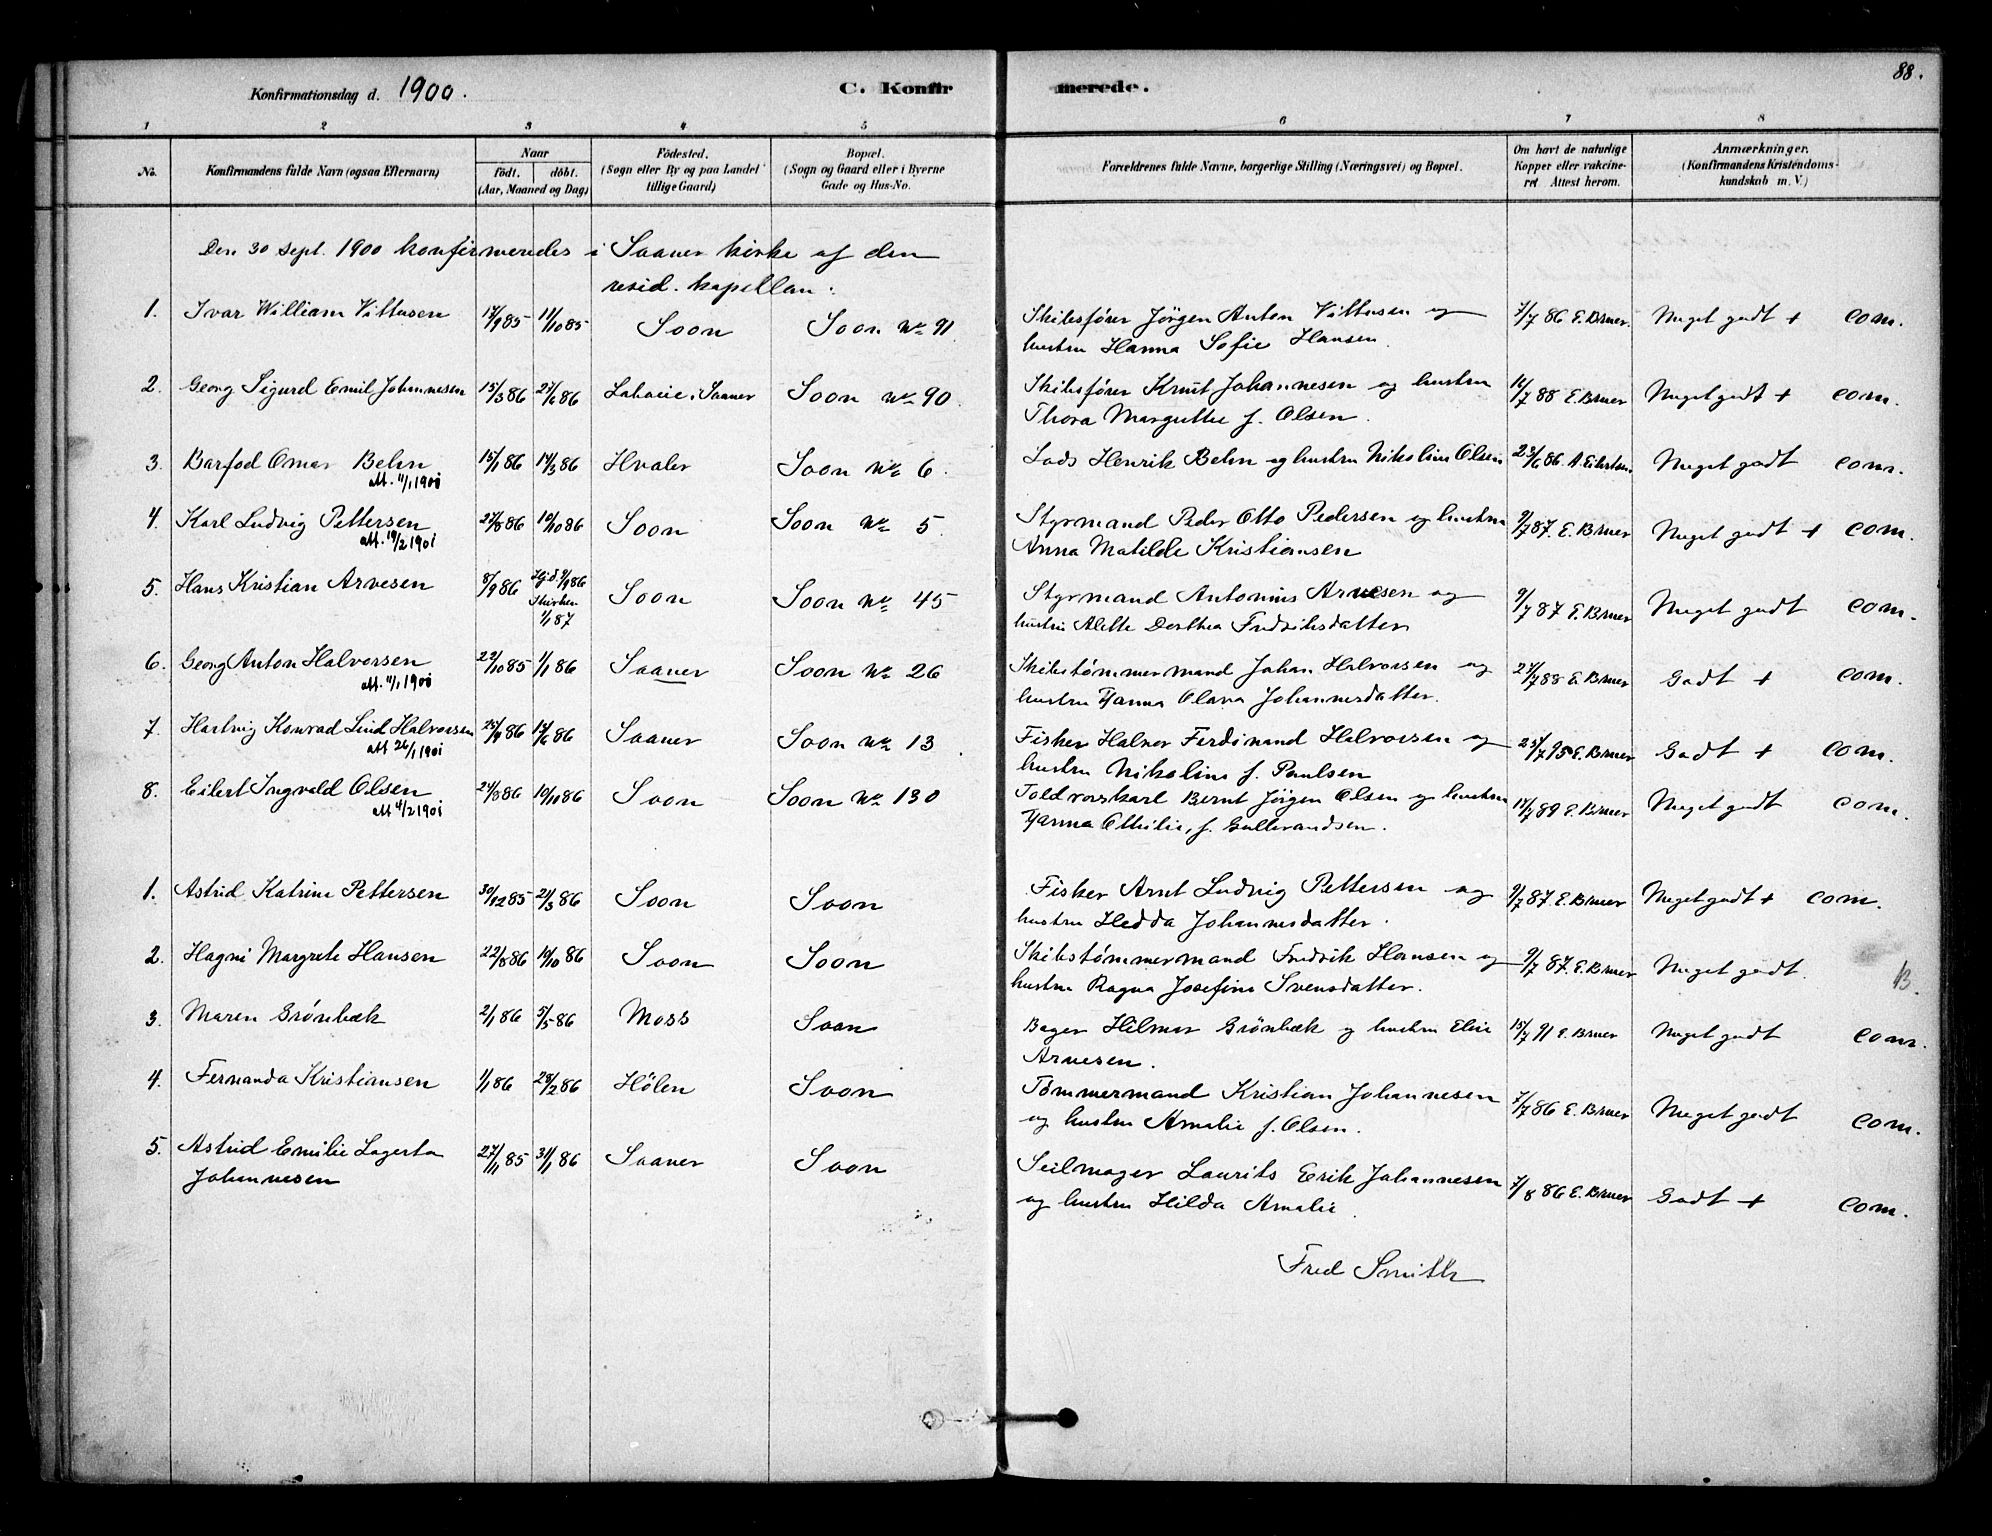 88.
Konfirmationsdag d. 1900.
C. Konfirmerede.
1 2 3 4 5 6 7 8
No.
Konfirmandens fulde Navn (ogsaa Efternavn)
Naar
födt. döbt.
(Aar, Maaned og Dag)
Födested.
(Sogn eller By og paa Landet
tillige Gaard)
Bopæl.
(Sogn og Gaard eller i Byerne
Gade og Hus-No.
Forældrenes fulde Navne, borgerlige Stilling (Næringsvei) og Bopæl.
Om havt de naturlige
Kopper eller vakcine-
ret Attest herom.
Anmærkninger.
(Konfirmandens Kristendoms-
kundskab m. V.)
Den 30 Sept. 1900 konfirmeredes i Saaner kirke af den
resid. kapellan:
1. Ivar William Vittusen 17/9 85 11/10 85 Soon Soon No 91 Skibsfører Jörgen Anton Vittusen og 7/7 86 E. Bruer. Meget godt + com.
hustru Hanna Sofie Hansen.
2. Georg Sigurd Emil Johannesen 15/3 86 27/6 86 Labaeie i Saaner Soon No 90. Skibsfører Knut Johannesen og hustru 11/7 88 E. Bruer Meget godt + com.
Thora Margrethe f. Olsen.
3. Barfod Omar Behn 15/1 86 14/3 86 Hvaler Soon No 6. Lods Henrik Behn og hustru Nikoline Olsen 23/6 86. Meget godt com.
att. 11/1 1901
4. Karl Ludvig Pettersen 27/8 86 10/10 86 Soon Soon No 5. Styrmand Peder Otto Pedersen og hustru 9/7 87. E. Bruer Meget godt + com.
att. 19/2 1901
Anna Matilde Kristiansen
5. Hans Kristian Arvesen 8/9 86 Hjd. 9/9 86 Soon Soon No 45 Styrmand Antonius Arvesen og 9/7 87 E. Bruer Meget godt com.
I kirken
1/1 87
hustru Alette Dorthea Fredriksdatter
6. Georg Anton Halvorsen 22/10 85 1/1 86 Saaner Soon No 26 Skibstømmermand Johan Halvorsen og 27/7 88 E. Bruer Godt + com.
att. 11/1 1901
hustru Hanna Olava Johannesdatter.
7. Hartvig Konrad Lind Halvorsen 25/4 86 14/6 86 Saaner Soon No 13. Fisker Halvor Ferdinand Halvorsen og 25/7 95 E. Bruer Godt + com.
att 26/1 1901
hustru Nikoline f. Paulsen
8. Eilert Ingvald Olsen 24/8 86 10/10 86 Soon Soon No 130 Toldrorskarl Bernt Jörgen Olsen og hustru 17/7 89 E. Bruer Meget godt com.
att 4/2 1901
Hanna Othilie, f. Gulbrandsen.
1. Astrid Katrine Pettersen 30/12 85 21/3 86 Soon Soon Fisker Arnt Ludvig Pettersen og 9/7 87. E. Bruer Meget godt + com.
hustru Hedda Johannesdatter.
2. Hagni Margrete Hansen 22/8 86 10/10 86 Soon Soon Skibstømmermand Fredrik Hansen og 9/7 87. E. Bruer Meget godt. 13.
hustru Ragna Josefine Svensdatter.
3. Maren Grønbæk 2/1 86 5/5 86 Moss Soon Bager Hilmar Grønbæk og hustru Elise 15/7 91 E. Bruer Meget godt com.
Arvesen.
4. Fernanda Kristiansen 1/1 86 28/2 86 Hölen Soon Tömmermand Kristian Johannesen 7/7 86 E. Bruer Meget godt com.
og hustru Amalie f. Olsen.
5. Astrid Emilie Lagerta 27/11 85 31/1 86 Saaner Soon Seilmager Laurits Erik Johannesen 7/8 86 E. Bruer Godt + com.
Johannesen
og hustru Hilda Amalie.
Fred Smith